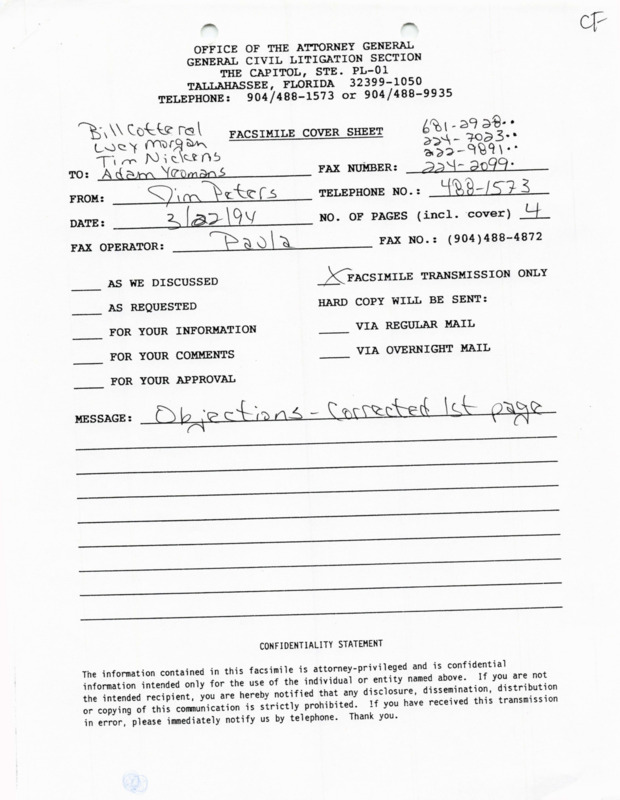 CF
OFFICE OF THE ATTORNEY GENERAL
GENERAL CIVIL LITIGATION SECTION
THE CAPITOL, STE. PL-01
TALLAHASSEE, FLORIDA 32399-1050
TELEPHONE: 904/488-1573 or 904/488-9935
FACSIMILE COVER SHEET
Bill Cotteral 681-2928..
Lucy Morgan 224-7023..
Tim Nickens 222-9891..
TO: Adam Yeomans FAX NUMBER: 224-2099.
FROM: Jim Peters TELEPHONE NO.: 488-1573
DATE: 3/22/94 NO. OF PAGES (incl. cover) 4
FAX OPERATOR: Paula FAX NO.: (904)488-4872
____ AS WE DISCUSSED X FACSIMILE TRANSMISSION ONLY
____ AS REQUESTED HARD COPY WILL BE SENT:
____ FOR YOUR INFORMATION ____ VIA REGULAR MAIL
____ FOR YOUR COMMENTS ____ VIA OVERNIGHT MAIL
____ FOR YOUR APPROVAL
MESSAGE: Objections - Corrected 1st page
CONFIDENTIALITY STATEMENT
The information contained in this facsimile is attorney-privileged and is confidential
information intended only for the use of the individual or entity named above. If you are not
the intended recipient, you are hereby notified that any disclosure, dissemination, distribution
or copying of this communication is strictly prohibited. If you have received this transmission
in error, please immediately notify us by telephone. Thank you.